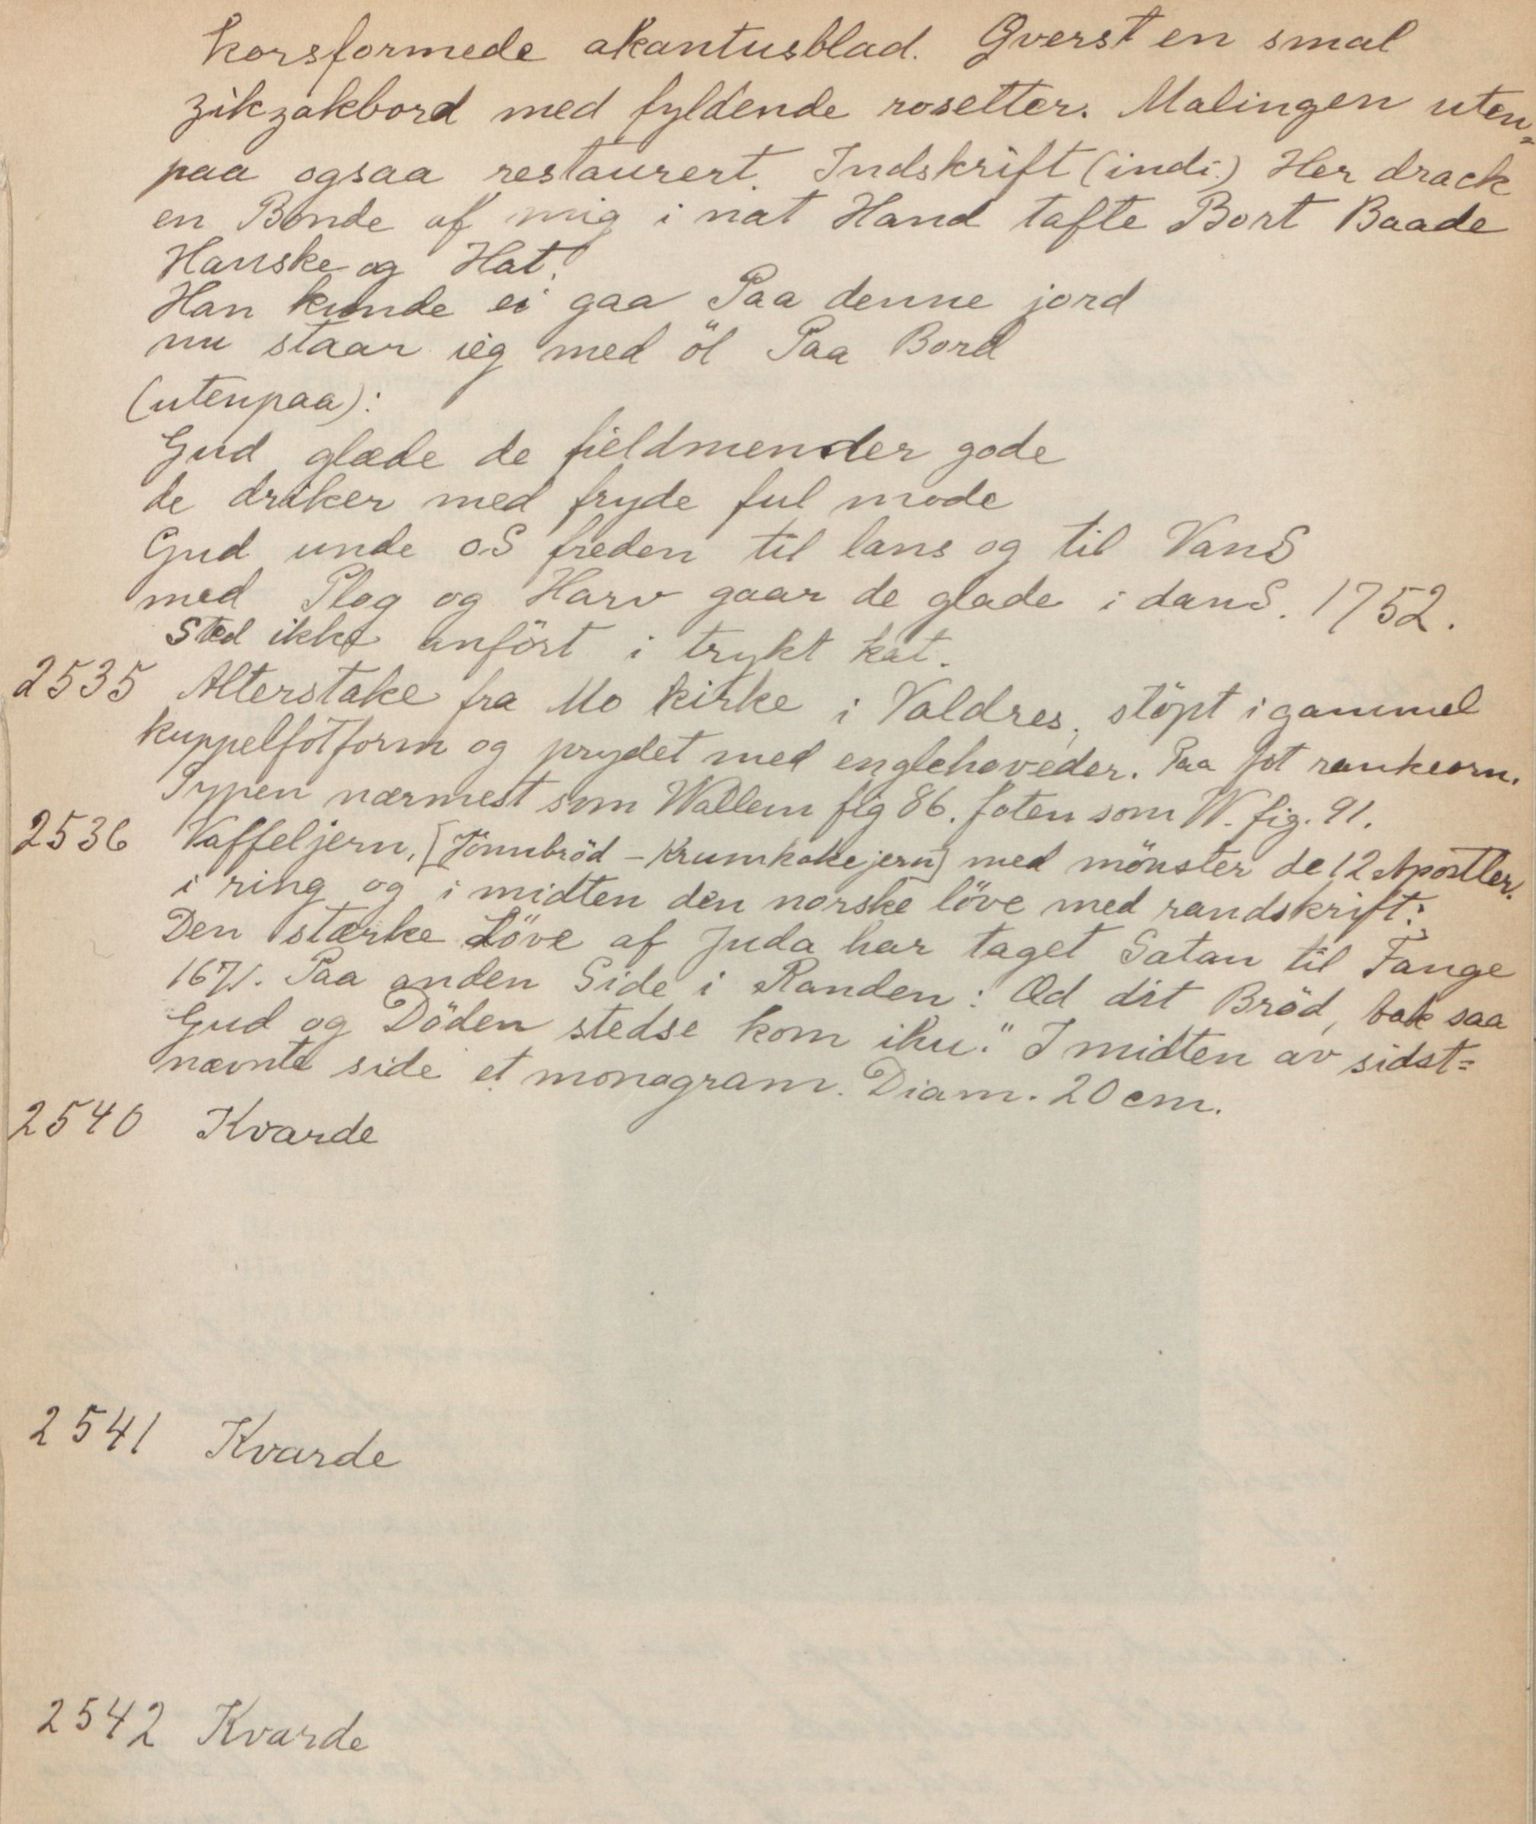 korsformede akantusblad. Øverst en smal
zikzakbord med fyldende rosetter. Malingen uten=
paa ogsaa restaurert. Indskrift (indi:) Her drack
en Bonde af mig i nat Hand tafte Bort Baade
Hanske og Hat.
Han kunde ei gaa Paa denne jord
nu staar ieg med öl Paa Bord
(utenpaa):
Gud glæde de fieldmender gode
de driker med fryde ful mode
Gud unde oS freden til lans og til VanS
med Plog og Harv gaar de glade i danS. 1752.
Sted ikke anfört i trykt kat.
2535 Alterstake fra Mo kirke i Valdres, stöpt i gammel
kuppelfotform og prydet med englehoveder. Paa fot rankeorn.
Typen nærmest som Wallem fig 86. foten som W. fig. 91.
2536 Vaffeljern, [Tönnbröd - Krumkakejern] med mönster de 12 Apostler.
i ring og i midten den norske löve med randskrift:
Den stærke Löve af Juda har taget Satan til Fange
1671. Paa anden Side i Randen: Æd dit Bröd, bak saa
Gud og Döden stedse kom ihu." I midten av sidst=
nævnte side et monogram. Diam. 20 cm.
2540 Kvarde
2541 Kvarde
2542 Kvarde